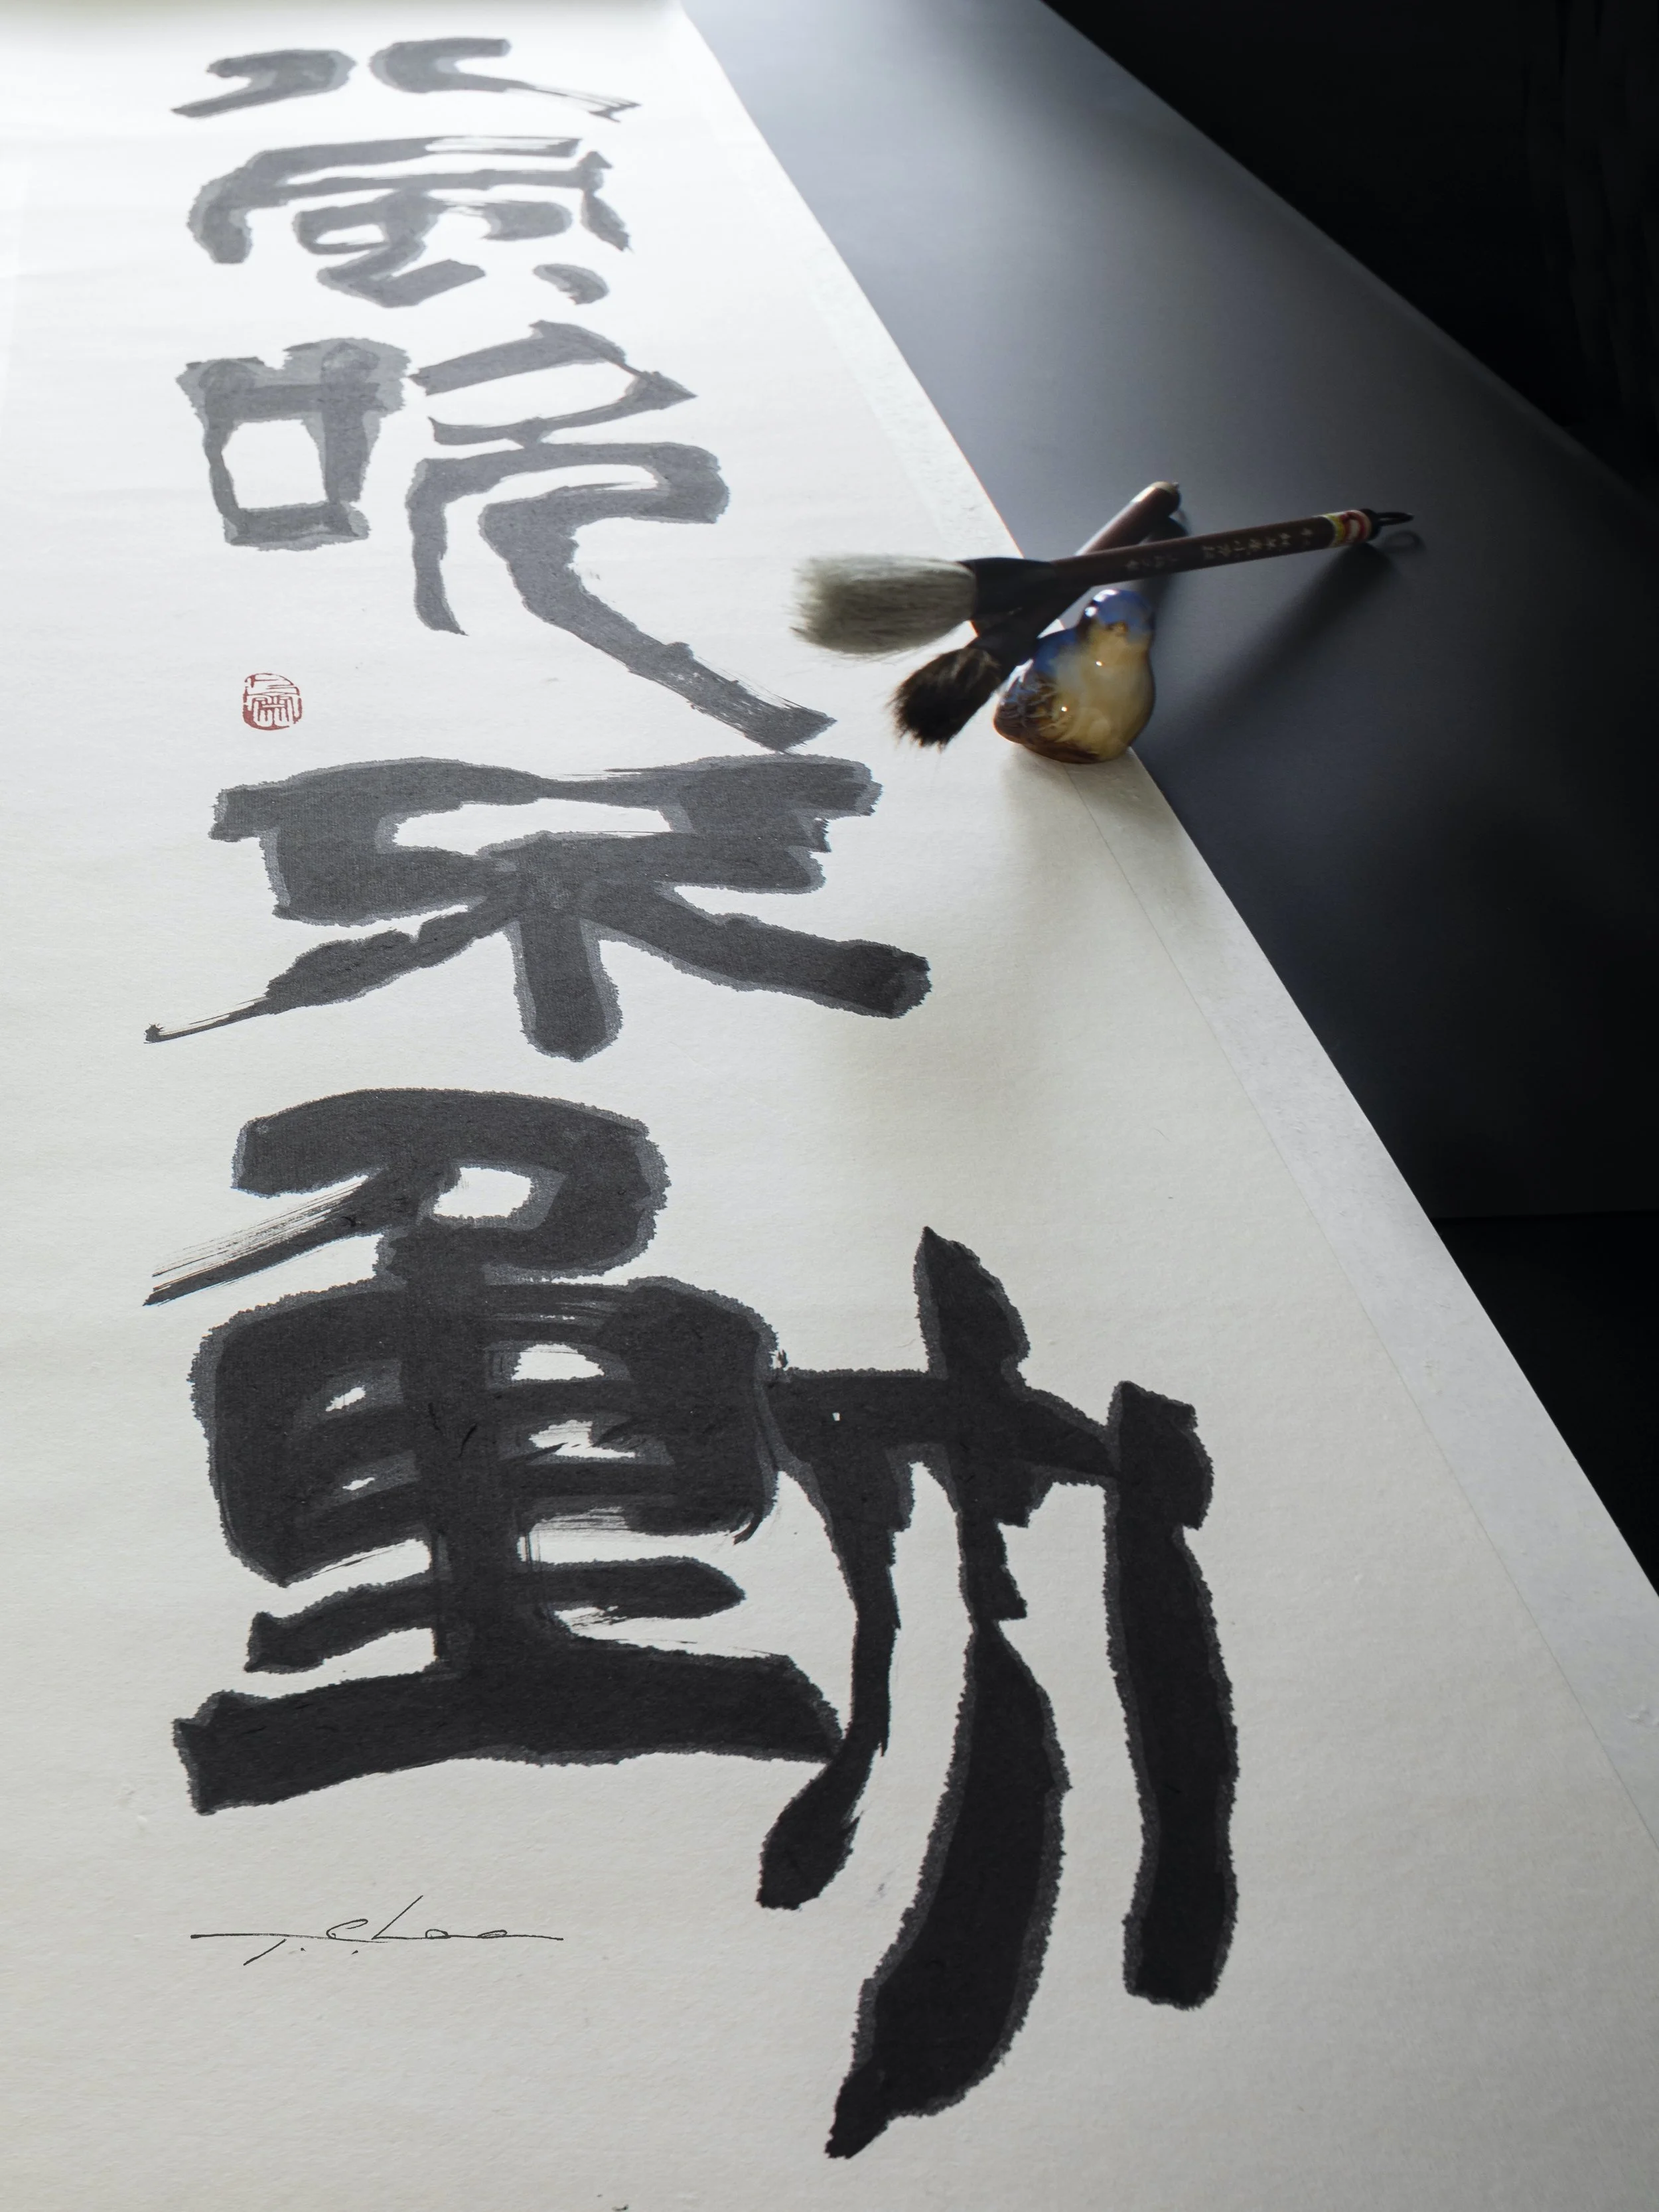 八風吹不動
T. Chao